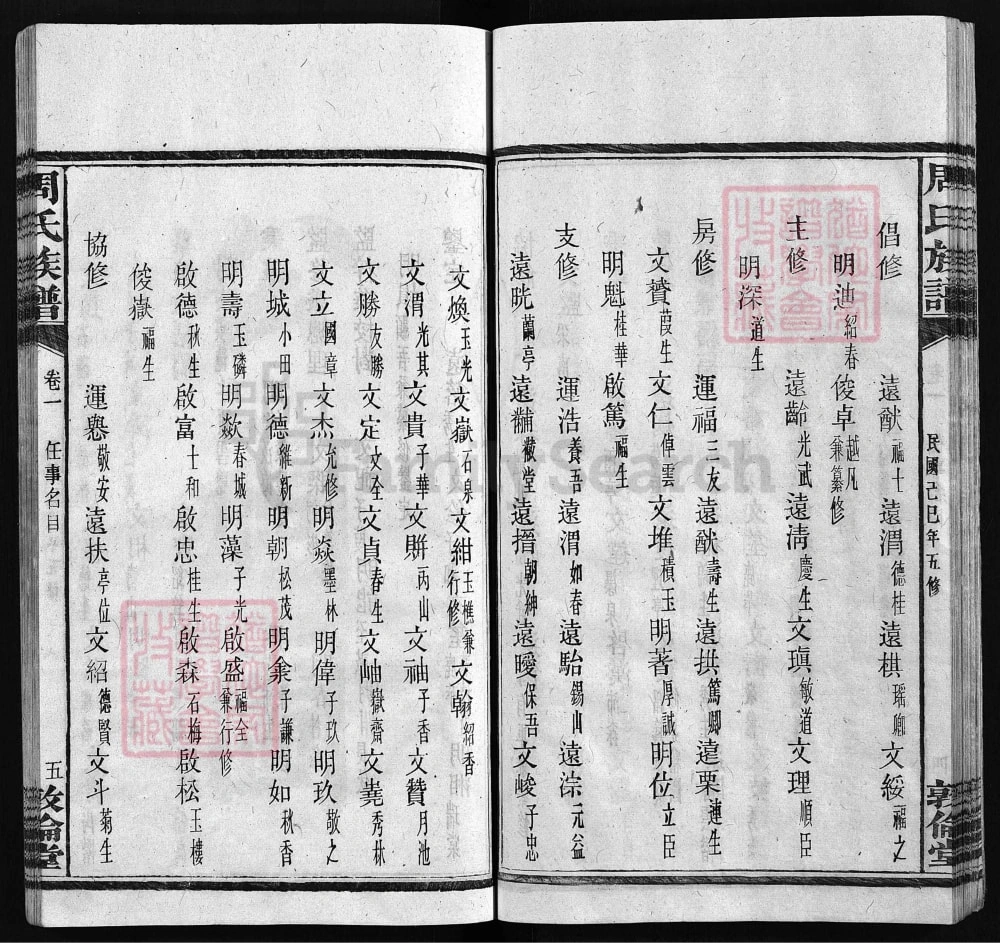 民國己巳年五修
敦倫堂
倡修 遠猷福士 遠渭德桂 遠棋瑶卿 文綏福之
明迪紹春 俊卓越凡兼纂修
主修 遠齡光武 遠清慶生 文瑱敏道 文理順臣
明深道生
房修 運福三友 遠猷壽生 遠拱篤卿 遠栗連生
文贊葭生 文仁倬雲 文堆積玉 明著厚誠 明位立臣
明魁桂華 啟篤福生
支修 運浩養吾 遠渭如春 遠駘錫山 遠淙元益
遠晄蘭亭 遠黼黻堂 遠搢朝紳 遠曖保吾 文峻子忠
文煥玉光 文嶽石泉 文紺玉樵兼行修 文翰紹香
文渭光其 文貴子華 文賆丙山 文袖子香 文贊月池
文勝友勝 文定文全 文貞春生 文岫嶽齋 文蕘秀林
文立國章 文杰允修 明焱墨林 明偉子玖 明玖敬之
明城小田 明德維新 明朝松茂 明彙子謙 明如秋香
明壽玉磷 明歘春城 明藻子光 啟盛福全兼行修
啟德秋生 啟富士和 啟忠桂生 啟森石梅 啟松玉樓
俊嶽福生
協修 運懋敬安 遠扶亭位 文紹德賢 文斗菊生
周氏族譜
卷一 任事名目
五 敦倫堂
FamilySearch